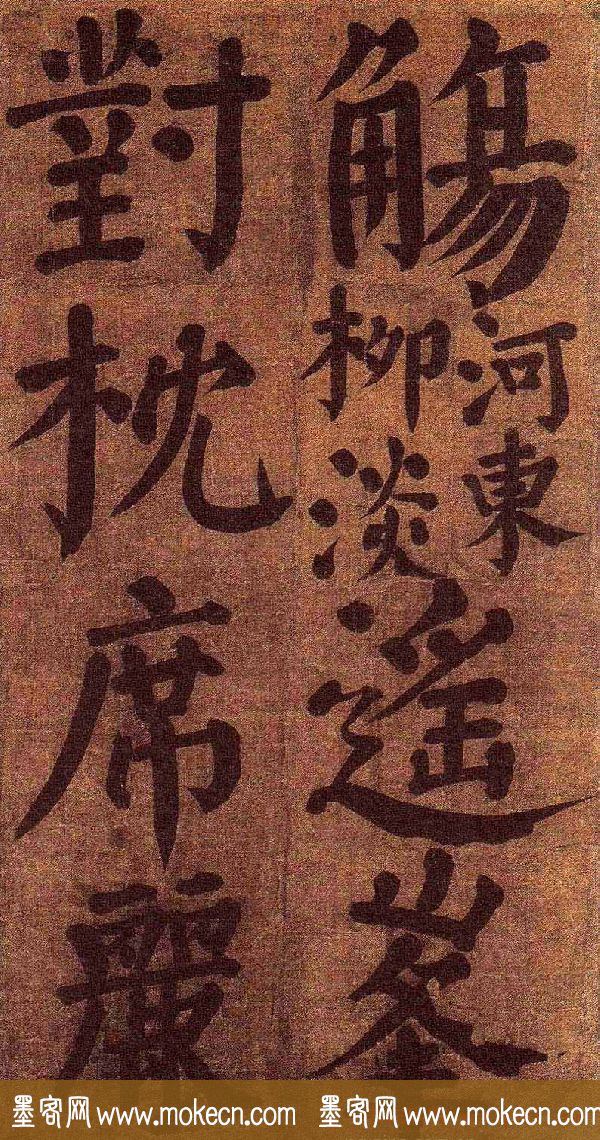 觴
河東
柳淡
遥峯
對枕席麗
墨客网 www.mokecn.com 墨客网 www.mokecn.com